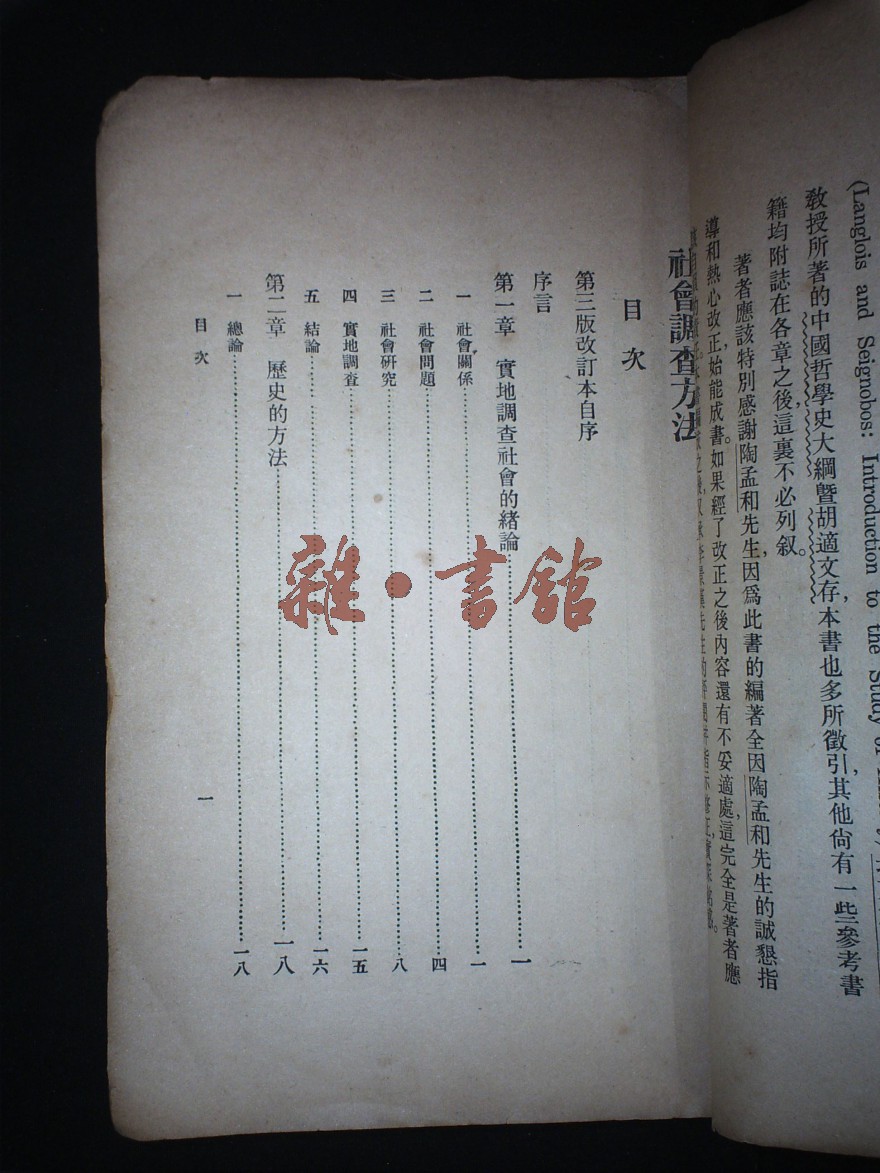 (Langlois and Seignobos: Introduction to the Study of
教授所著的中國哲學史大綱曁胡適文存，本書也多所徵引，其他尙有一些參考書
籍均附誌在各章之後這裏不必列叙。
著者應該特別感謝陶孟和先生，因爲此書的編著全因陶孟和先生的誠懇指
導和熱心改正，始能成書。如果經了改正之後內容還有不妥適處，這完全是著者應
社會調查方法
目次
第三版改訂本自序
序言
第一章 實地調查社會的緒論 一
一 社會關係 一
二 社會問題 四
三 社會硏究 八
四 實地調查 一五
五 結論 一六
第二章 歷史的方法 一八
一 總論 一八
目次
一
雜·書館